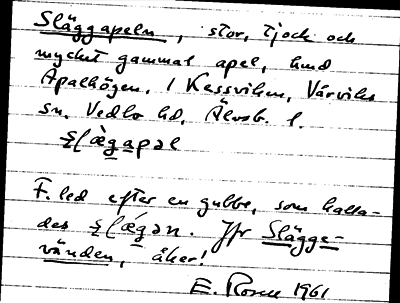 Släggapeln, stor, tjock och
mycket gammal apel, hud
Apalhögen, i Kessviken, Värviks
sn, Vedbo hd, Älvsb. l.
ʂlæ̀gapəl
F. led efter en gubbe, som kalla-
des ʂlǽgən. Jfr Slägge-
vänden, åker!
E. Rosen 1961